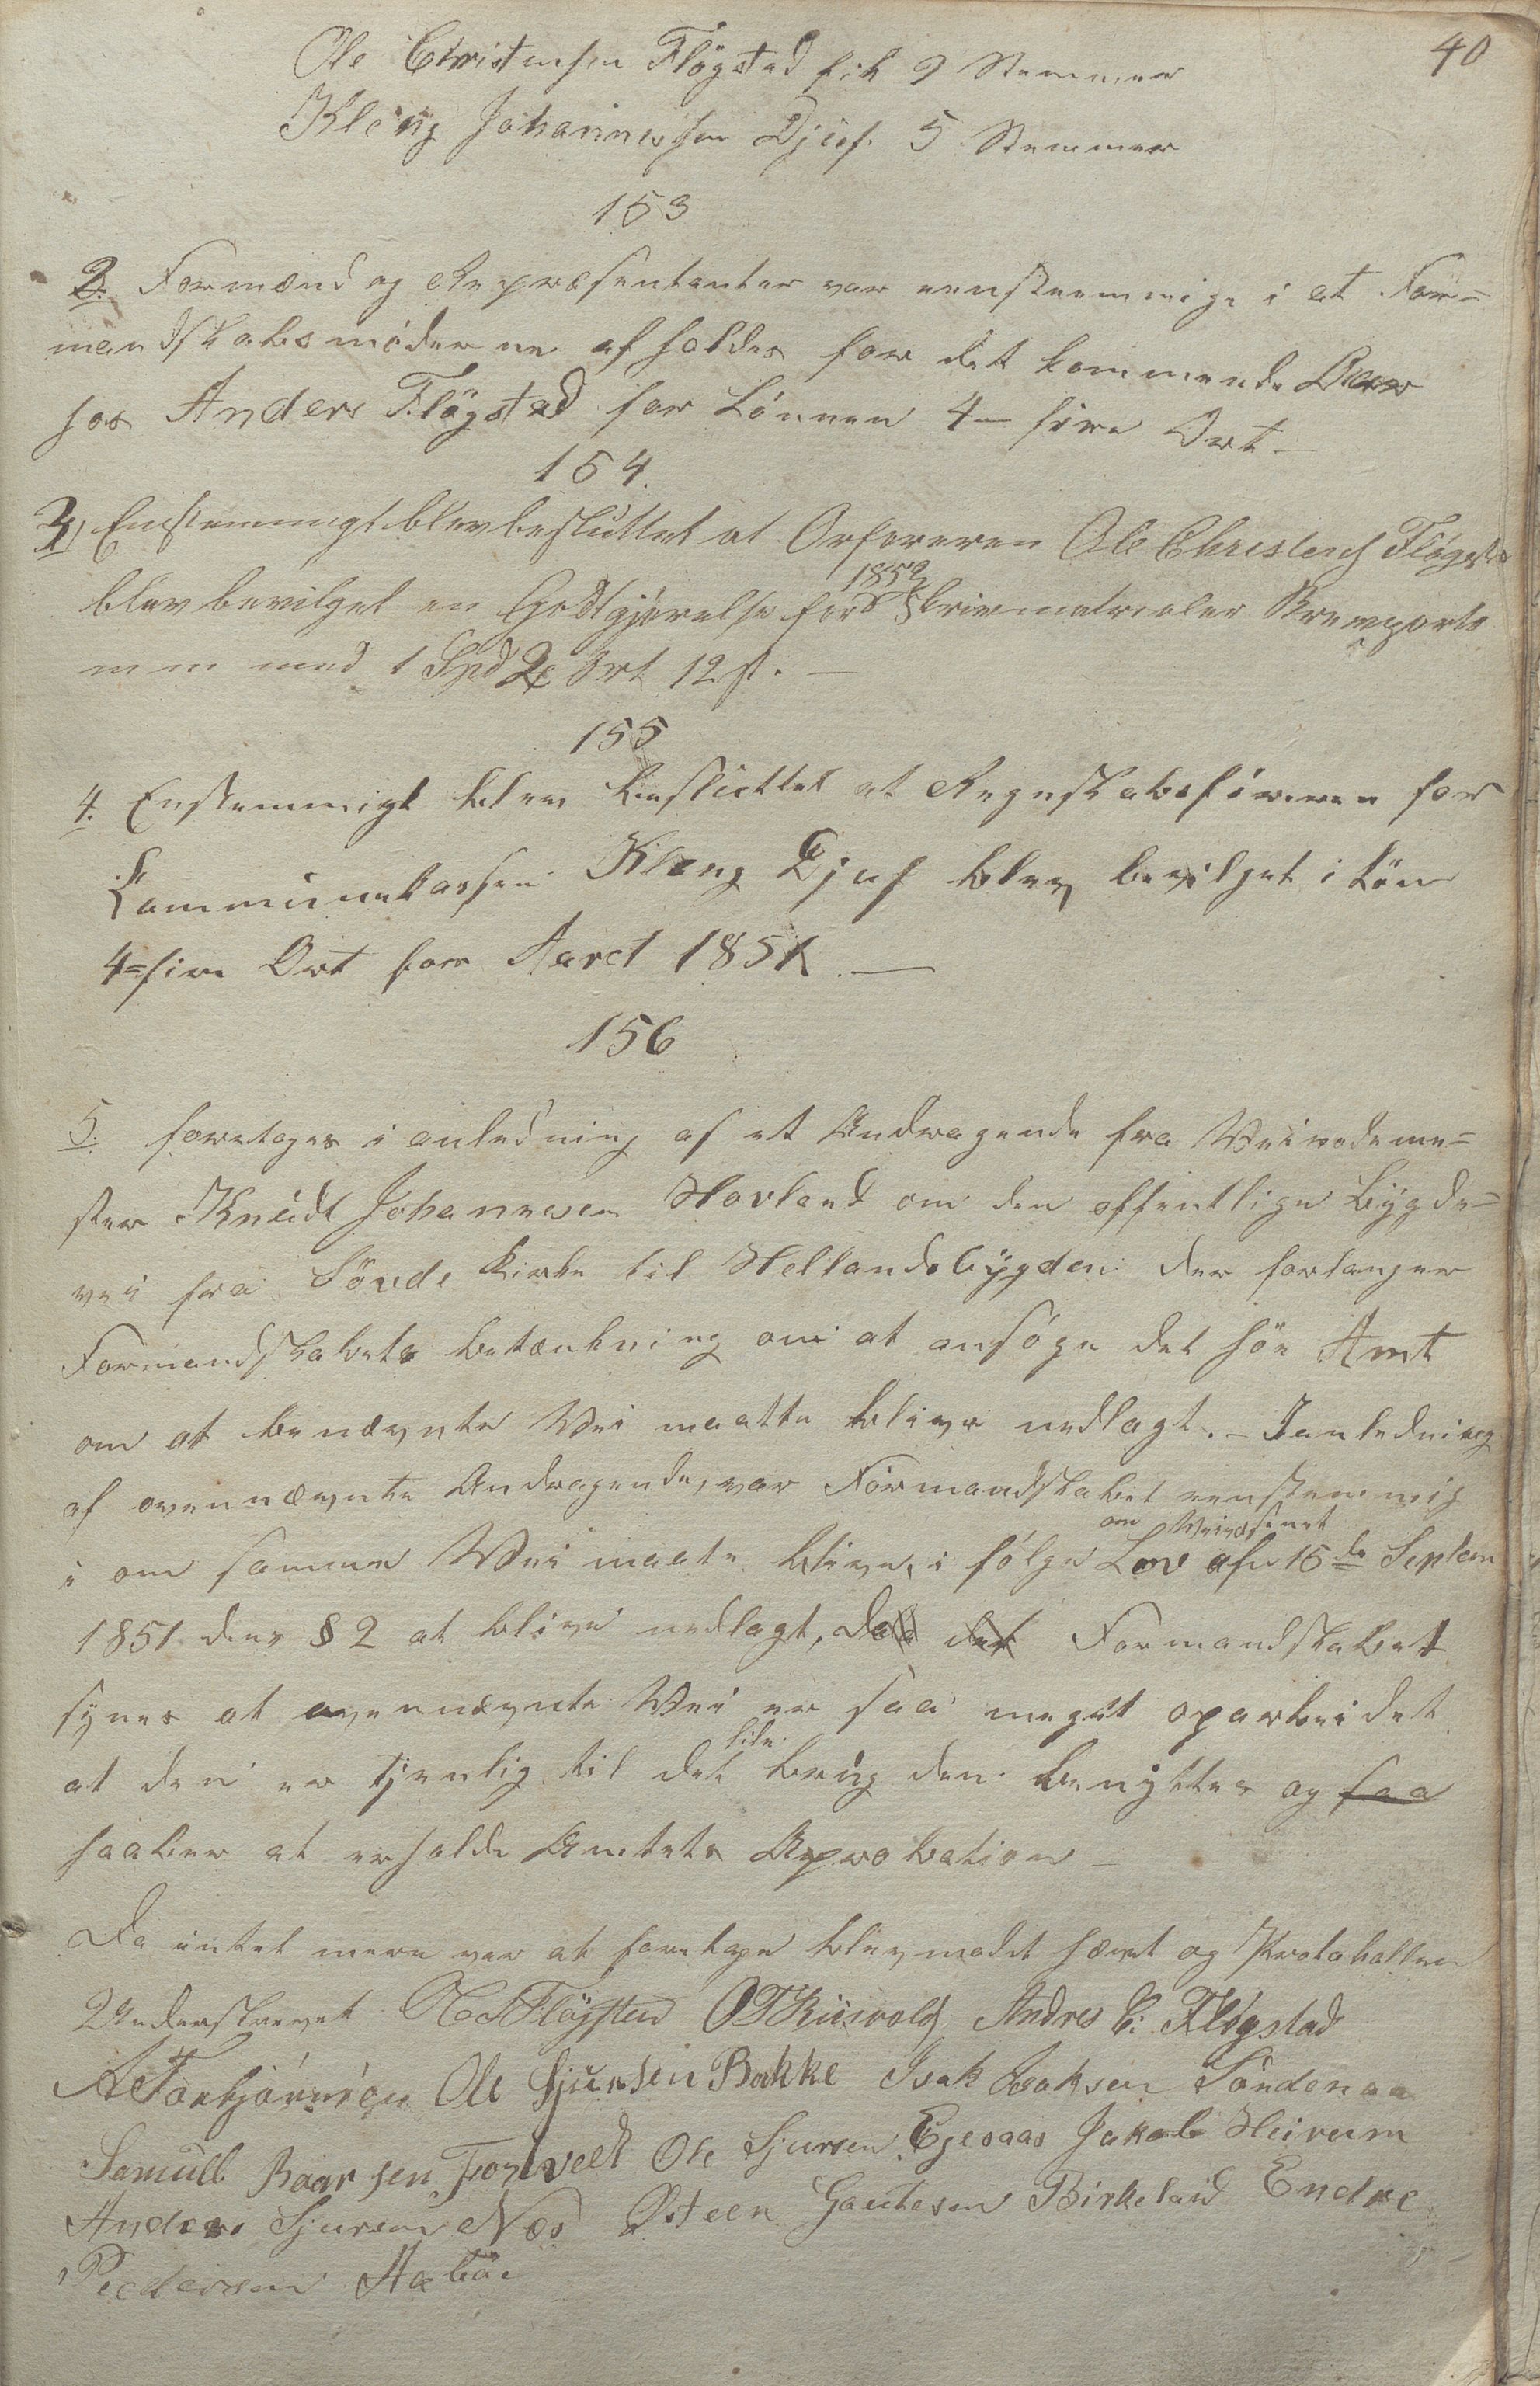 40
Ole Christensen Flögstad fik 9 Stemmer
Kleng Johannessen Djuf. 5 Stemmer
153
2. Formænd og Repræsentanter var eenstemmige i at For=
mandskabsmöderne afholdes for det kommende Aar
hos Anders Flögstad for Lönnen 4 – fire Ort –
154.
3, Enstemmigt blev besluttet at Orföreren Ole Christens Flögsta
blev bevilget en Godtgjörelse for 1852 Skrivmatrialer Brevporto
m m med 1 Spd 2 Ort 12 s. –
155
4. Enstemmigt blev besluttet at Regnskabsföreren for
Communekassen Kleng Djuf blev bevilget i Lön
4=fire Ort for Aaret 1851. –
156
5. foretoges i anledning af et Andragende fra Veirodeme=
ster Knudt Johannesen Hovland om den offentlige Bÿgde=
vei fra Sövde Kirke til Hellandsbÿgden der forlanger
Formandskabets betænkning om at ansöge det höie Amt
om at benævnte Vei maatte blive nedlagt. – I anledning
af ovennævnte Andragende, var Formandskabet eenstemmig
i om samme Vei maate blive, i fölge Lov om Veivæsenet af 15de Septem
1851 dens § 2 at blive nedlagt, da det Formandskabet
synes at ovennævnte Vei er saa meget oparbeidet
at den er tjenlig til det lile brug den benÿttes og saa
haaber at erholde Amtets Aprobation –
Da intet mere var at foretage blev mödet hævet og Protokollen
Underskrevet O C Flögstad O T Kiisvold Andres C. Flögstad
A Torbjörnsen Ole Sjursen Bakke Isak Isaksen Söndenaa
Samuel Baarsen Fostveit Ole Sjursen Egesaas Jakob Heirum
Anders Sjursen Næs Östeen Gautesen Birkeland Endre
Pedersen Haböe